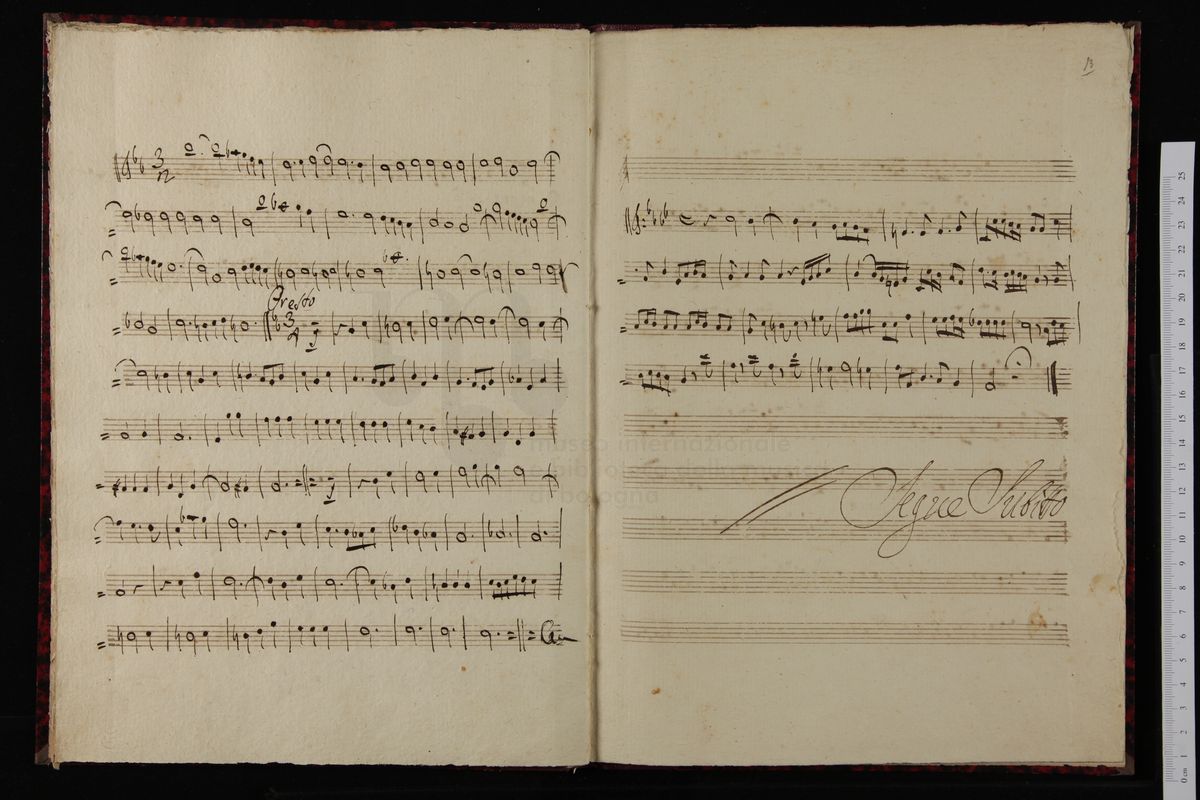 3
2
Presto
3
4
13
Segue Subito
museo internazionale
e biblioteca della musica
di bologna
0 cm 1 2 3 4 5 6 7 8 9 10 11 12 13 14 15 16 17 18 19 20 21 22 23 24 25